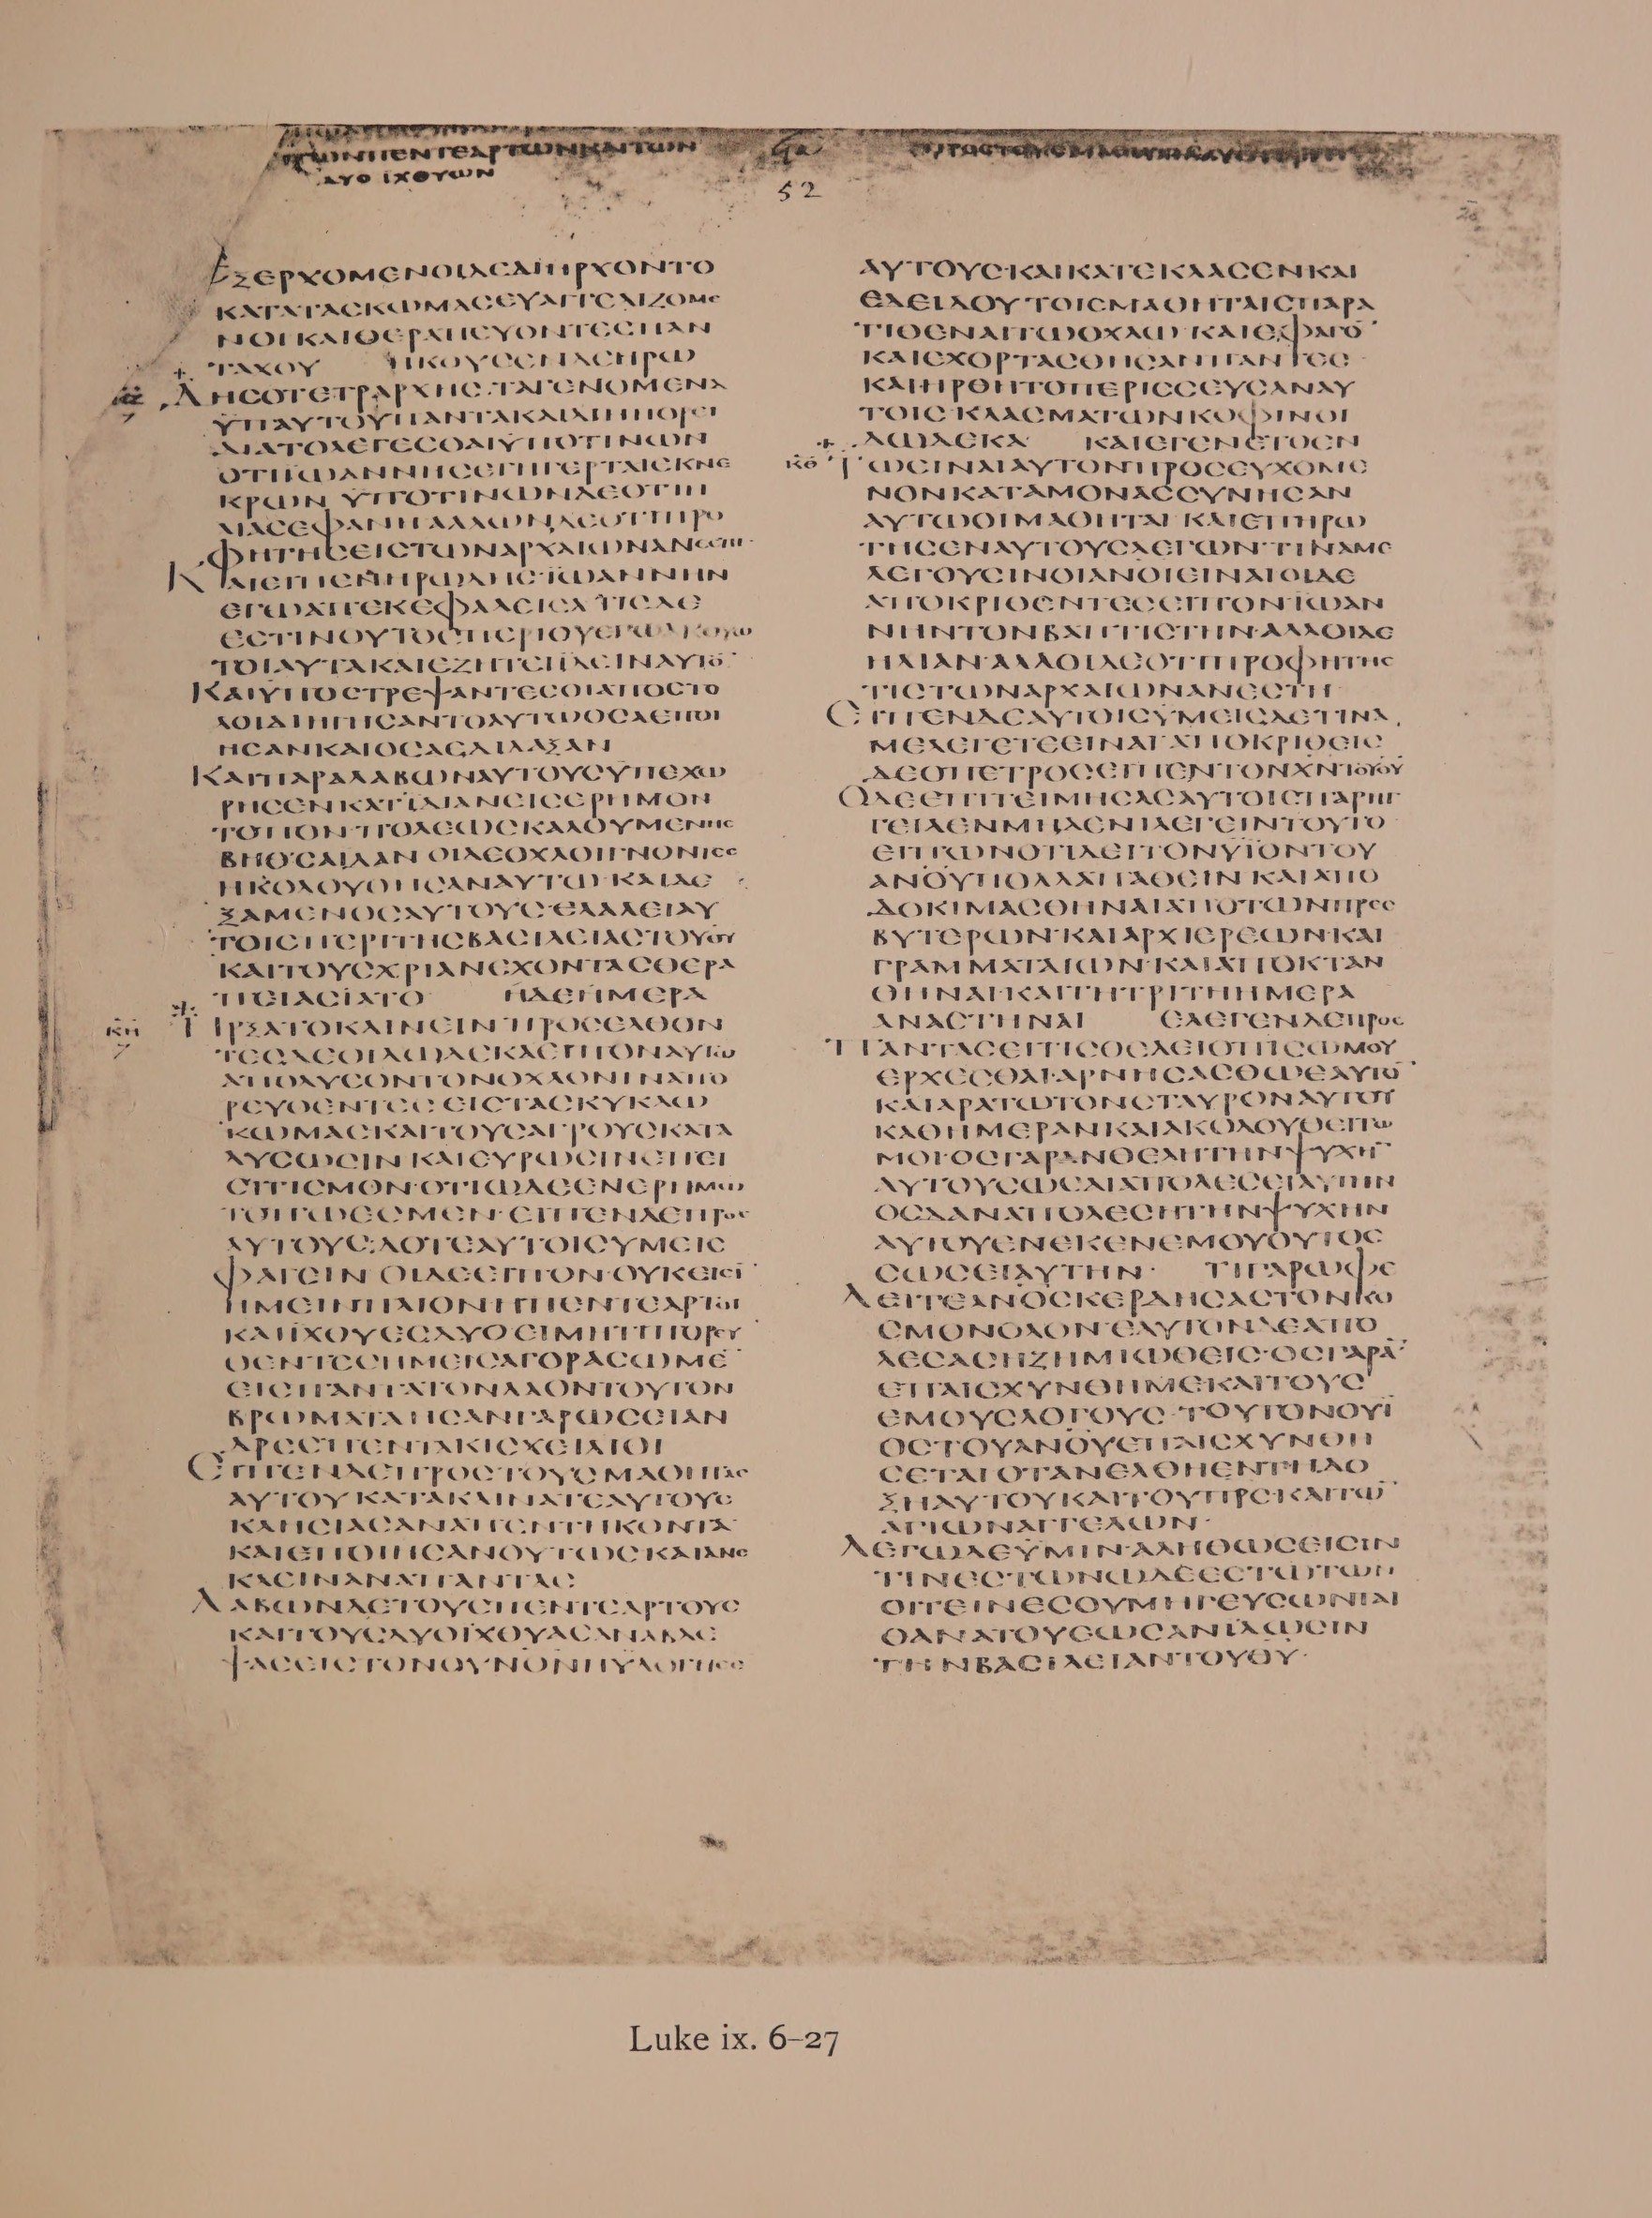 ΤΩΝΠΕΝΤΕΑΡΤΩΝΚΑΙΤΩΝ
ΔΥΟ ΙΧΘΥΩΝ
52
ΕΞΕΡΧΟΜΕΝΟΙΔΕΔΙΗΡΧΟΝΤΟ
ΚΑΤΑΤΑΣΚΩΜΑΣΕΥΑΓΓΕΛΙΖΟΜΕ
ΝΟΙΚΑΙΘΕΡΑΠΕΥΟΝΤΕΣΠΑΝ
ΤΑΧΟΥ ΗΚΟΥΣΕΝΔΕΗΡΩ
ΔΗΣΟΤΕΤΡΑΡΧΗΣ·ΤΑΓΕΝΟΜΕΝΑ
ΫΠΑΥΤΟΥΠΑΝΤΑΚΑΙΔΙΗΠΟΡΕΙ
ΔΙΑΤΟΛΕΓΕΣΘΑΙΫΠΟΤΙΝΩΝ
ΟΤΙΪΩΑΝΝΗΣΕΓΗΓΕΡΤΑΙΕΚΝΕ
ΚΡΩΝ ΫΠΟΤΙΝΩΝΔΕΟΤΙΗ
ΛΙΑΣΕΦΑΝΗΑΛΛΩΝΔΕΟΤΙΠΡΟ
ΦΗΤΗΣΕΙΣΤΩΝΑΡΧΑΙΩΝΑΝΕΣΤΗ·
ΚΑΙΕΙΠΕΝΗΡΩΔΗΣ·ΪΩΑΝΝΗΝ
ΕΓΩΑΠΕΚΕΦΑΛΕΙΣΑ ΤΙΣΔΕ
ΕΣΤΙΝΟΥΤΟΣΠΕΡΙΟΥΕΓΩΑΚΟΥΩ
ΤΟΙΑΥΤΑΚΑΙΕΖΗΤΕΙΪΔΕΙΝΑΥΤΟ̄
ΚΑΙΫΠΟΣΤΡΕΨΑΝΤΕΣΟΙΑΠΟΣΤΟ
ΛΟΙΔΙΗΓΗΣΑΝΤΟΑΥΤΩΟΣΑΕΠΟΙ
ΗΣΑΝΚΑΙΟΣΑΕΔΙΔΑΞΑΝ
ΚΑΙΠΑΡΑΛΑΒΩΝΑΥΤΟΥΣΫΠΕΧΩ
ΡΗΣΕΝΚΑΤΪΔΙΑΝΕΙΣΕΡΗΜΟΝ
ΤΟΠΟΝ·ΠΟΛΕΩΣΚΑΛΟΥΜΕΝΗΣ
ΒΗΘΣΑΙΔΑΝ ΟΙΔΕΟΧΛΟΙΓΝΟΝΤΕΣ
ΗΚΟΛΟΥΘΗΣΑΝΑΥΤΩ·ΚΑΙΔΕ
ΞΑΜΕΝΟΣΑΥΤΟΥΣ·ΕΛΑΛΕΙΑΥ
ΤΟΙΣΠΕΡΙΤΗΣΒΑΣΙΛΕΙΑΣΤΟΥΘΥ
ΚΑΙΤΟΥΣΧΡΙΑΝΕΧΟΝΤΑΣΘΕΡΑ
ΠΕΙΑΣΪΑΤΟ ΗΔΕΗΜΕΡΑ
ΚΗ ΗΡΞΑΤΟΚΛΙΝΕΙΝ·ΠΡΟΣΕΛΘΟΝ
ΤΕΣΔΕΟΙΔΩΔΕΚΑΕΙΠΟΝΑΥΤΩ
ΑΠΟΛΥΣΟΝΤΟΝΟΧΛΟΝΙΝΑΠΟ
ΡΕΥΘΕΝΤΕΣ ΕΙΣΤΑΣΚΥΚΛΩ
ΚΩΜΑΣΚΑΙΤΟΥΣΑΓΡΟΥΣΚΑΤΑ
ΛΥΣΩΣΙΝ ΚΑΙΕΥΡΩΣΙΝΕΠΕΙ
ΣΙΤΙΣΜΟΝ·ΟΤΙΩΔΕΕΝΕΡΗΜΩ
ΤΟΠΩΕΣΜΕΝ·ΕΙΠΕΝΔΕΠΡΟΣ
ΑΥΤΟΥΣ·ΔΟΤΕΑΥΤΟΙΣΥΜΕΙΣ
ΦΑΓΕΙΝ ΟΙΔΕΕΙΠΟΝ·ΟΥΚΕΙΣΪ
ΗΜΕΙΝΠΛΙΟΝΗΠΕΝΤΕΑΡΤΟΙ
ΚΑΙΪΧΘΥΕΣΔΥΟ ΕΙΜΗΤΙΠΟΡΕΥ
ΘΕΝΤΕΣΗΜΕΙΣΑΓΟΡΑΣΩΜΕ̄
ΕΙΣΠΑΝΤΑΤΟΝΛΑΟΝΤΟΥΤΟΝ
ΒΡΩΜΑΤΑ ΗΣΑΝΓΑΡΩΣΕΙΑΝ
ΔΡΕΣΠΕΝΤΑΚΙΣΧΕΙΛΙΟΙ
ΕΙΠΕΝΔΕΠΡΟΣΤΟΥΣΜΑΘΗΤΑΣ
ΑΥΤΟΥ ΚΑΤΑΚΛΙΝΑΤΕΑΥΤΟΥΣ
ΚΛΗΣΙΑΣΑΝΑΠΕΝΤΗΚΟΝΤΑ
ΚΑΙΕΠΟΙΗΣΑΝΟΥΤΩΣΚΑΙΑΝΕ
ΚΛΙΝΑΝΑΠΑΝΤΑΣ
ΛΑΒΩΝΔΕΤΟΥΣΠΕΝΤΕΑΡΤΟΥΣ
ΚΑΙΤΟΥΣΔΥΟΪΧΘΥΑΣΑΝΑΒΛΕ
ΨΑΣΕΙΣΤΟΝΟΥΝΟΝΗΥΛΟΓΗΣΕ
ΑΥΤΟΥΣ·ΚΑΙΚΑΤΕΚΛΑΣΕΝΚΑΙ
ΕΔΕΙΔΟΥ ΤΟΙΣΜΑΘΗΤΑΙΣΠΑΡΑ
ΤΙΘΕΝΑΙΤΩΟΧΛΩ·ΚΑΙΕΦΑΓΟ̄
ΚΑΙΕΧΟΡΤΑΣΘΗΣΑΝΠΑΝΤΕΣ·
ΚΑΙΗΡΘΗΤΟΠΕΡΙΣΣΕΥΣΑΝΑΥ
ΤΟΙΣ·ΚΛΑΣΜΑΤΩΝΚΟΦΙΝΟΙ
ΔΩΔΕΚΑ ΚΑΙΕΓΕΝΕΤΟΕΝ
ΚΘ ΤΩΕΙΝΑΙΑΥΤΟΝΠΡΟΣΕΥΧΟΜΕ
ΝΟΝΚΑΤΑΜΟΝΑΣΣΥΝΗΣΑΝ
ΑΥΤΩΟΙΜΑΘΗΤΑΙ ΚΑΙΕΠΗΡΩ
ΤΗΣΕΝΑΥΤΟΥΣΛΕΓΩΝ·ΤΙΝΑΜΕ
ΛΕΓΟΥΣΙΝΟΙΑΝΟΙΕΙΝΑΙΟΙΔΕ
ΑΠΟΚΡΙΘΕΝΤΕΣΕΙΠΟΝΪΩΑΝ
ΝΗΝΤΟΝΒΑΠΤΙΣΤΗΝ·ΑΛΛΟΙΔΕ
ΗΛΙΑΝ·ΑΛΛΟΙΔΕΟΤΙΠΡΟΦΗΤΗΣ
ΤΙΣΤΩΝΑΡΧΑΙΩΝΑΝΕΣΤΗ·
ΕΙΠΕΝΔΕΑΥΤΟΙΣΫΜΕΙΣΔΕΤΙΝΑ
ΜΕΛΕΓΕΤΕΕΙΝΑΙ ΑΠΟΚΡΙΘΕΙΣ
ΔΕΟΠΕΤΡΟΣΕΙΠΕΝΤΟΝΧΝΤΟΥΘΥ
ΟΔΕΕΠΙΤΕΙΜΗΣΑΣΑΥΤΟΙΣΠΑΡΗΓ
ΓΕΙΛΕΝΜΗΔΕΝΙΛΕΓΕΙΝΤΟΥΤΟ
ΕΙΠΩΝΟΤΙΔΕΙΤΟΝΥΪΟΝΤΟΥ
ΑΝΟΥΠΟΛΛΑΠΑΘΕΙΝ ΚΑΙΑΠΟ
ΔΟΚΙΜΑΣΘΗΝΑΙΑΠΟΤΩΝΠΡΕΣ
ΒΥΤΕΡΩΝ·ΚΑΙΑΡΧΙΕΡΕΩΝ·ΚΑΙ
ΓΡΑΜΜΑΤΑΙΩΝ·ΚΑΙΑΠΟΚΤΑΝ
ΘΗΝΑΙ·ΚΑΙΤΗΤΡΙΤΗΗΜΕΡΑ
ΑΝΑΣΤΗΝΑΙ ΕΛΕΓΕΝΔΕΠΡΟΣ
ΠΑΝΤΑΣΕΙΤΙΣΘΕΛΕΙΟΠΙΣΩΜΟΥ
ΕΡΧΕΣΘΑΙ·ΑΡΝΗΣΑΣΘΩΕΑΥΤΟ̄
ΚΑΙΑΡΑΤΩΤΟΝΣΤΑΥΡΟΝΑΥΤΟΥ
ΚΑΘΗΜΕΡΑΝΚΑΙΑΚΟΛΟΥΘΕΙΤΩ
ΜΟΙ·ΟΣΓΑΡΑΝΘΕΛΗΤΗΝΨΥΧΗ̄
ΑΥΤΟΥΣΩΣΑΙΑΠΟΛΕΣΕΙΑΥΤΗΝ
ΟΣΔΑΝΑΠΟΛΕΣΗΤΗΝΨΥΧΗΝ
ΑΥΤΟΥΕΝΕΚΕΝΕΜΟΥΟΥΤΟΣ
ΣΩΣΕΙΑΥΤΗΝ· ΤΙΓΑΡΩΦΕ
ΛΕΙΤΕΑΝΟΣΚΕΡΔΗΣΑΣΤΟΝΚΟ
ΣΜΟΝΟΛΟΝ·ΕΑΥΤΟΝΔΕΑΠΟ
ΛΕΣΑΣΗΖΗΜΙΩΘΕΙΣ·ΟΣΓΑΡᾹ
ΕΠΑΙΣΧΥΝΘΗΜΕΚΑΙΤΟΥΣ
ΕΜΟΥΣΛΟΓΟΥΣ·ΤΟΥΤΟΝΟΥΙ
ΟΣΤΟΥΑΝΟΥΕΠΑΙΣΧΥΝΘΗ
ΣΕΤΑΙ ΟΤΑΝΕΛΘΗΕΝΤΗΔΟ
ΞΗΑΥΤΟΥΚΑΙΤΟΥΠΡΣ·ΚΑΙΤΩ̄
ΑΓΙΩΝΑΓΓΕΛΩΝ·
ΛΕΓΩΔΕΫΜΙΝ·ΑΛΗΘΩΣΕΙΣΙΝ
ΤΙΝΕΣΤΩΝΩΔΕΕΣΤΩΤΩΝ
ΟΙΤΕΙΝΕΣΟΥΜΗΓΕΥΣΩΝΤΑΙ
ΘΑΝΑΤΟΥΕΩΣΑΝΪΔΩΣΙΝ
ΤΗΝΒΑΣΙΛΕΙΑΝΤΟΥΘΥ·
Luke ix. 6–27